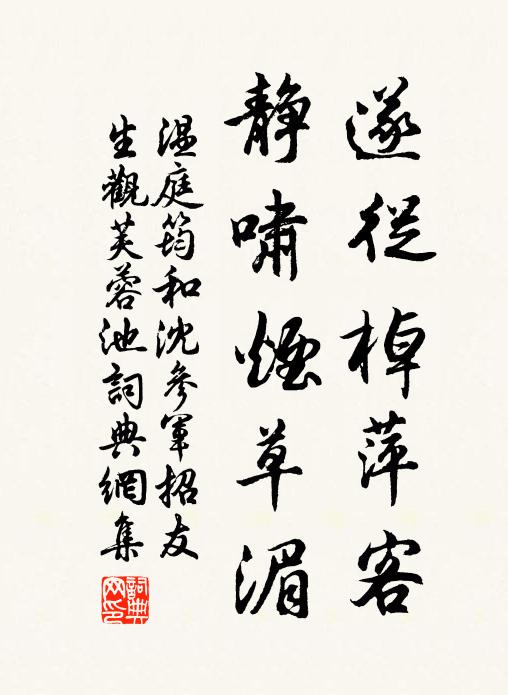 遂從棹萍客
靜嘯煙草湄
温庭筠和沈參軍招友
生觀芙蓉池詞典網集
詞典網印